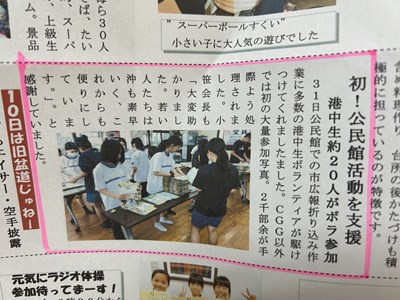 含め料理作り、台所の後かたづけも積
極的に担っているのが特徴です。
初！公民館活動を支援
港中生約２０人がボラ参加
３１日公民館での市広報折り込み作
業に多数の港中生ボランティアが駆け
つけてくれましたました。ＣＧＧ以外
では初の大量参加写真。２千部余が手
際よう処
理されま
した。小
笹会長も
「大変助
かりまし
た。若い
人たちは
沖も素早
いく、こ
れからも
便りにし
ていま
す。」と
感謝していました。
”スーパーボールすくい”
小さい子に大人気の遊びでした
ら３０人
上級生
景品
１０日は旧盆道じゅねー
エイサー・空手披露
元気にラジオ体操
参加待ってまーす！